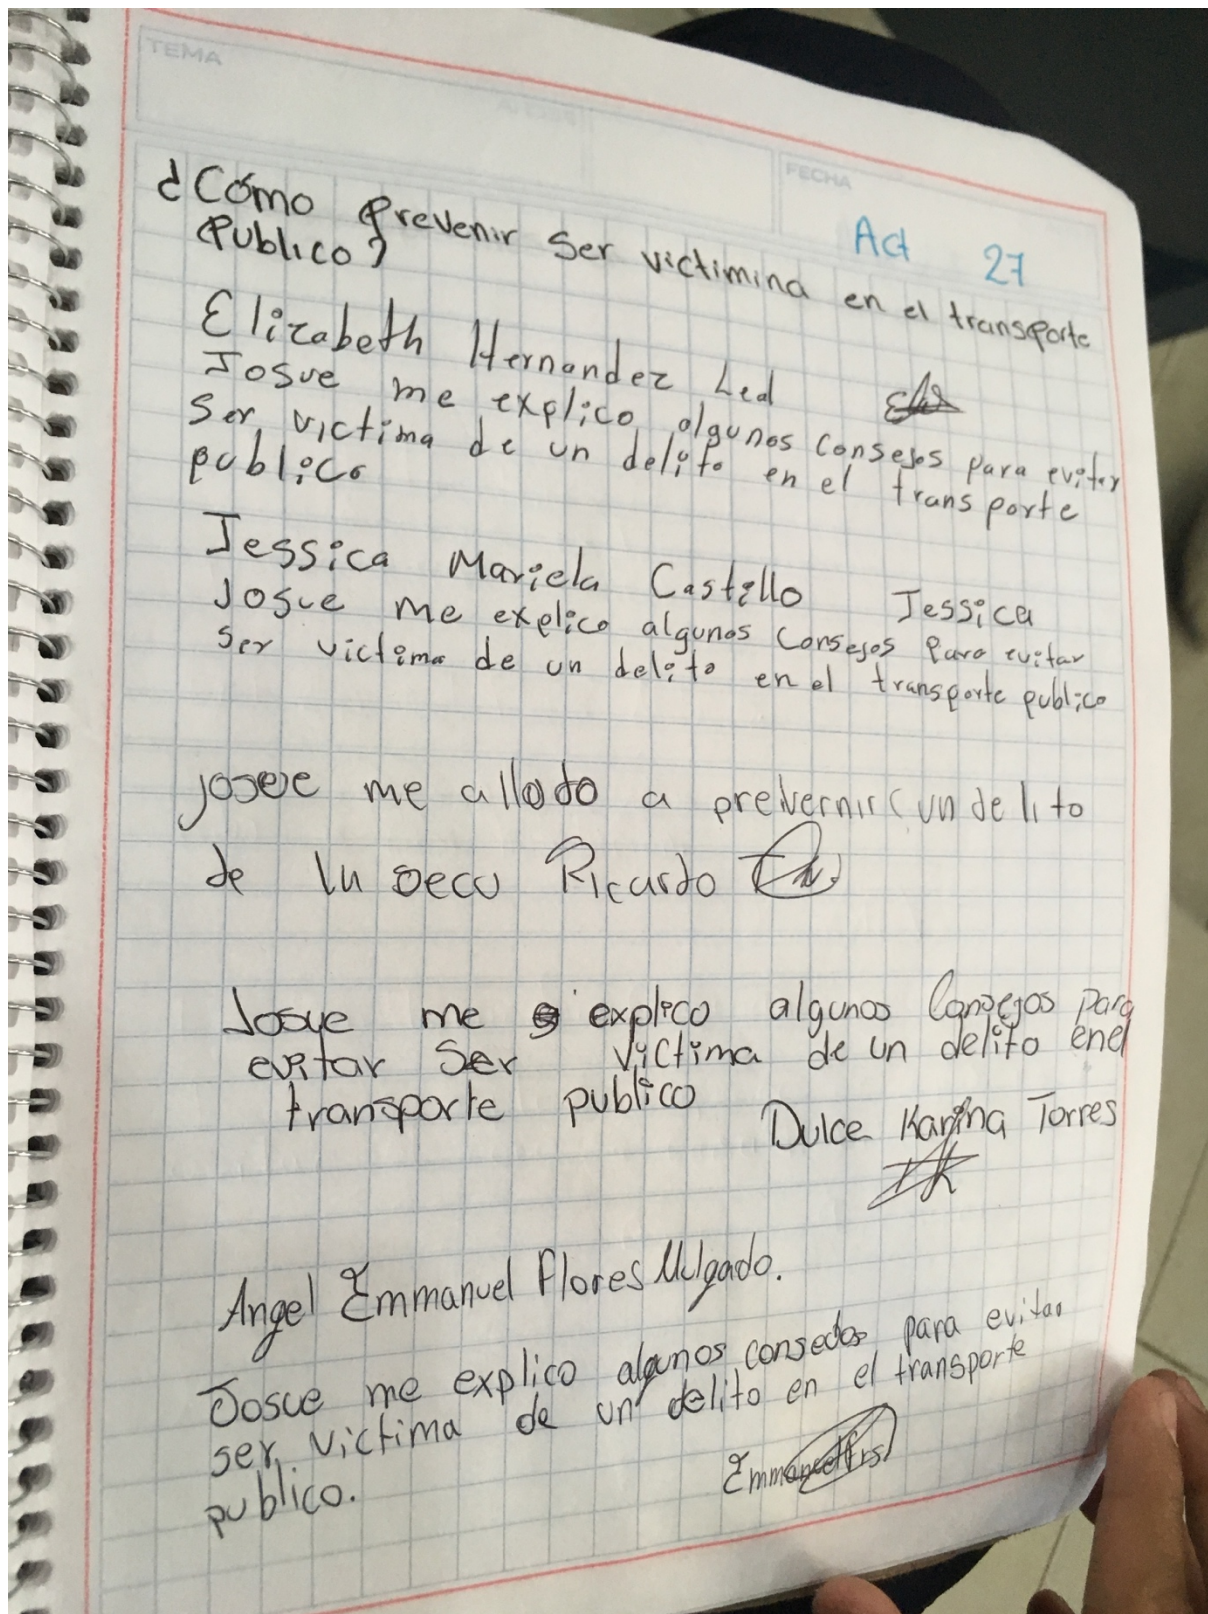 TEMA
FECHA
Act 27
¿Cómo Prevenir Ser victimina en el transporte
Publico?
Elizabeth Hernandez Led
Josue me explico algunos consejos para evitar
ser victima de un delito en el transporte
publico
Jessica Mariela Castillo Jessica
Josue me explico algunos consejos para evitar
ser victima de un delito en el transporte publico
me allodo a prevernir un delito
de Ricardo
Josue me explico algunos Consejos para
evitar Ser victima de un delito en el
transporte publico
Dulce Karina Torres
Angel Emmanuel Flores Mulgado.
Josue me explico algunos consedos para evitar
ser victima de un delito en el transporte
publico.